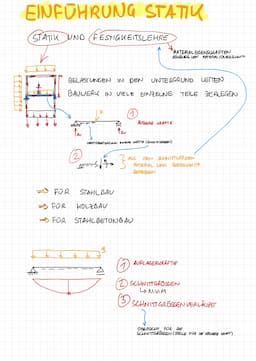 EINFÜHRUNG STATIK
STATIK UND FESTIGKEITSLEHRE
MATERIALEIGENSCHAFTEN
BELASTUNGEN IN DEN UNTERGRUND LEITEN
BAUWERK IN VIELE EINZELNE TEILE ZERLEGEN
1
ÄUSSERE KRÄFTE
2
AUS DEN SCHNITTGRÖSSEN
MATERIAL UND QUERSCHNITTE
⇒ FÜR STAHLBAU
⇒ FÜR HOLZBAU
⇒ FÜR STAHLBETONBAU
1 AUFLAGERKRÄFTE
2 SCHNITTGRÖSSEN
↳ N,V,M
3 SCHNITTGRÖSSENVERLÄUFE